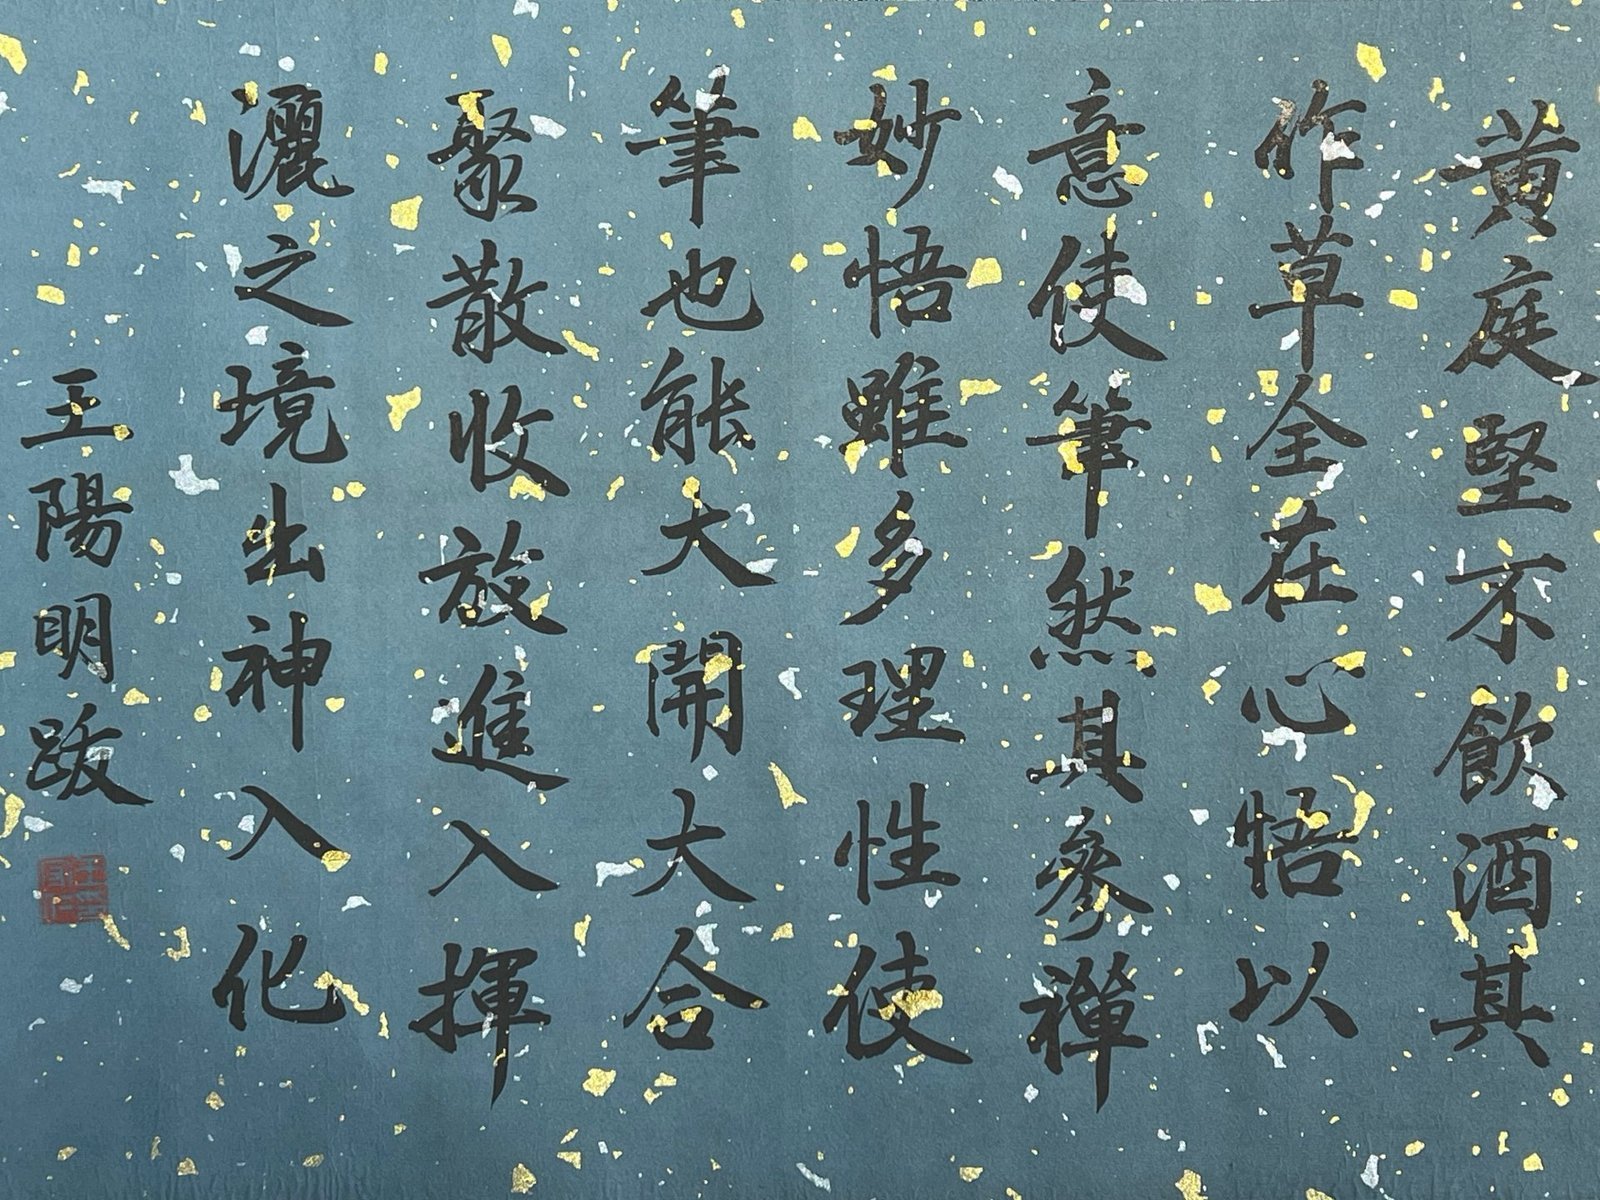 黄庭堅不飲酒其
作草全在心悟以
意使筆然其參禪
妙悟雖多理性使
筆也能大開大合
聚散收放進入揮
灑之境出神入化
王陽明跋